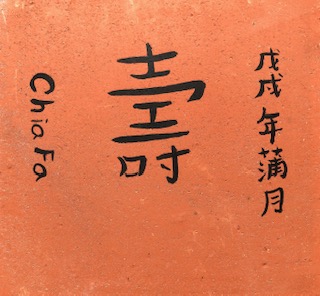 戊戌年蒲月
壽
Chia Fa